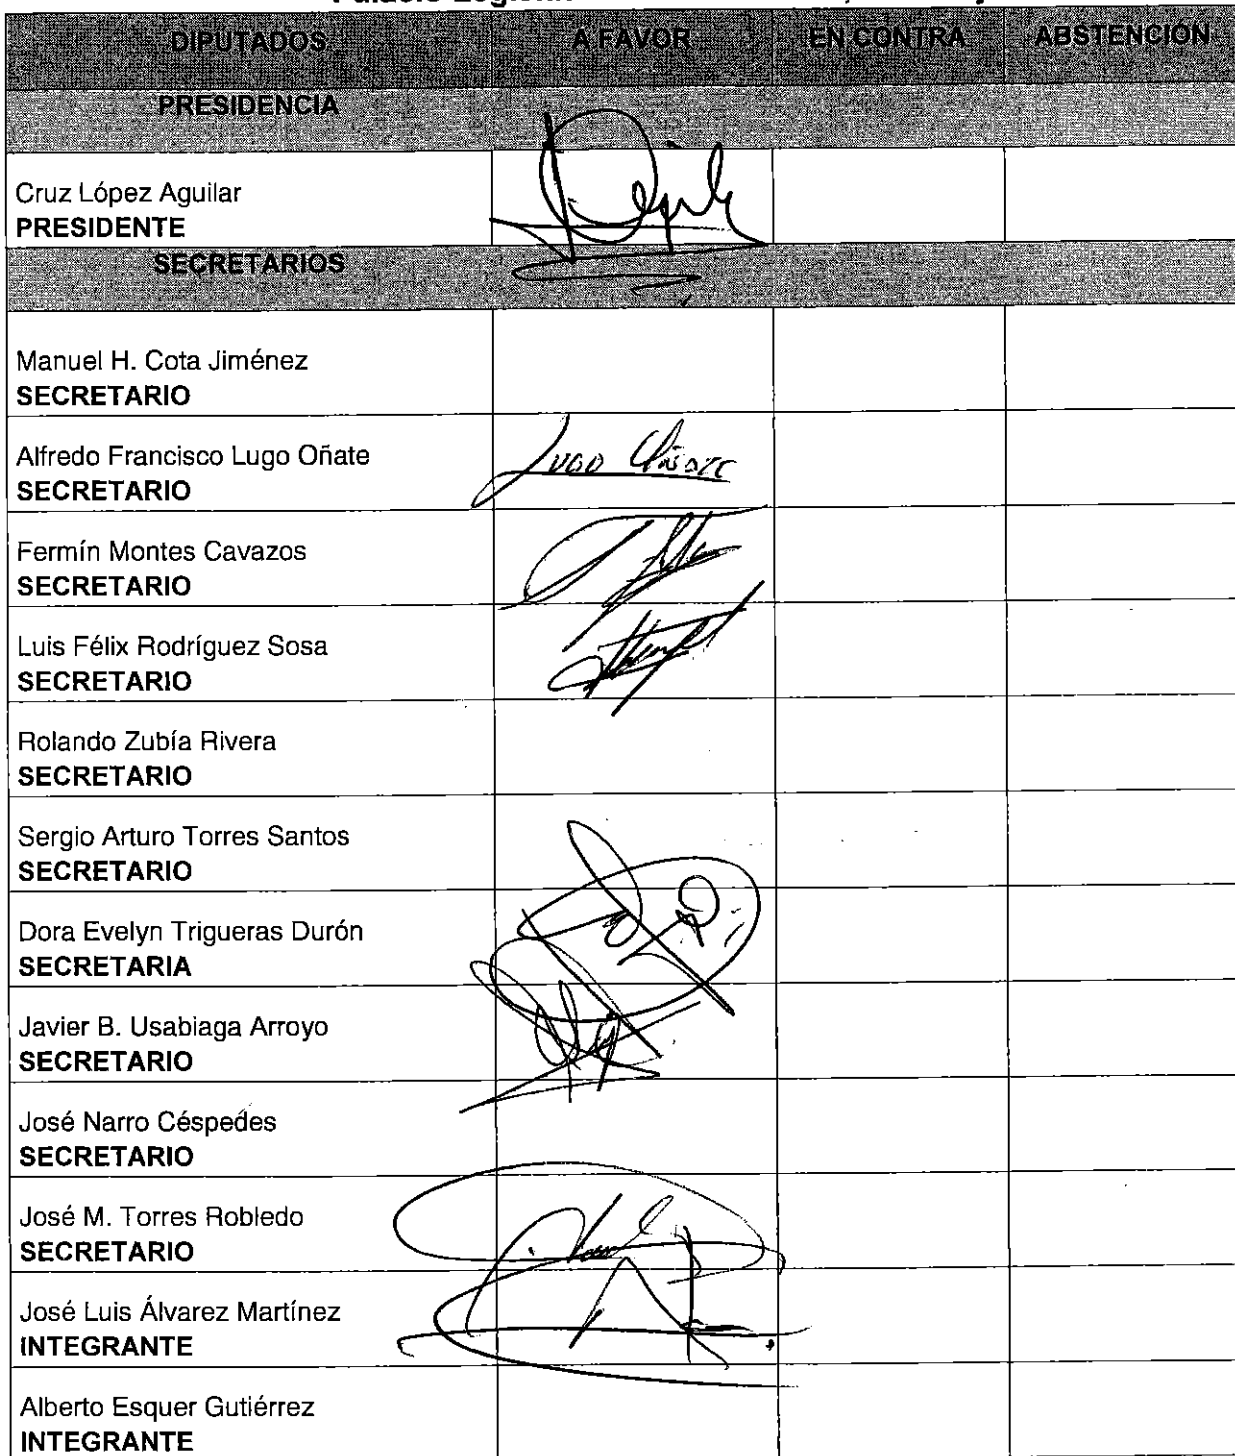 DIPUTADOS A FAVOR EN CONTRA ABSTENCIÓN
PRESIDENCIA
Cruz López Aguilar
PRESIDENTE
SECRETARIOS
Manuel H. Cota Jiménez
SECRETARIO
Alfredo Francisco Lugo Oñate
SECRETARIO
Fermín Montes Cavazos
SECRETARIO
Luis Félix Rodríguez Sosa
SECRETARIO
Rolando Zubía Rivera
SECRETARIO
Sergio Arturo Torres Santos
SECRETARIO
Dora Evelyn Trigueras Durón
SECRETARIA
Javier B. Usabiaga Arroyo
SECRETARIO
José Narro Céspedes
SECRETARIO
José M. Torres Robledo
SECRETARIO
José Luis Álvarez Martínez
INTEGRANTE
Alberto Esquer Gutiérrez
INTEGRANTE